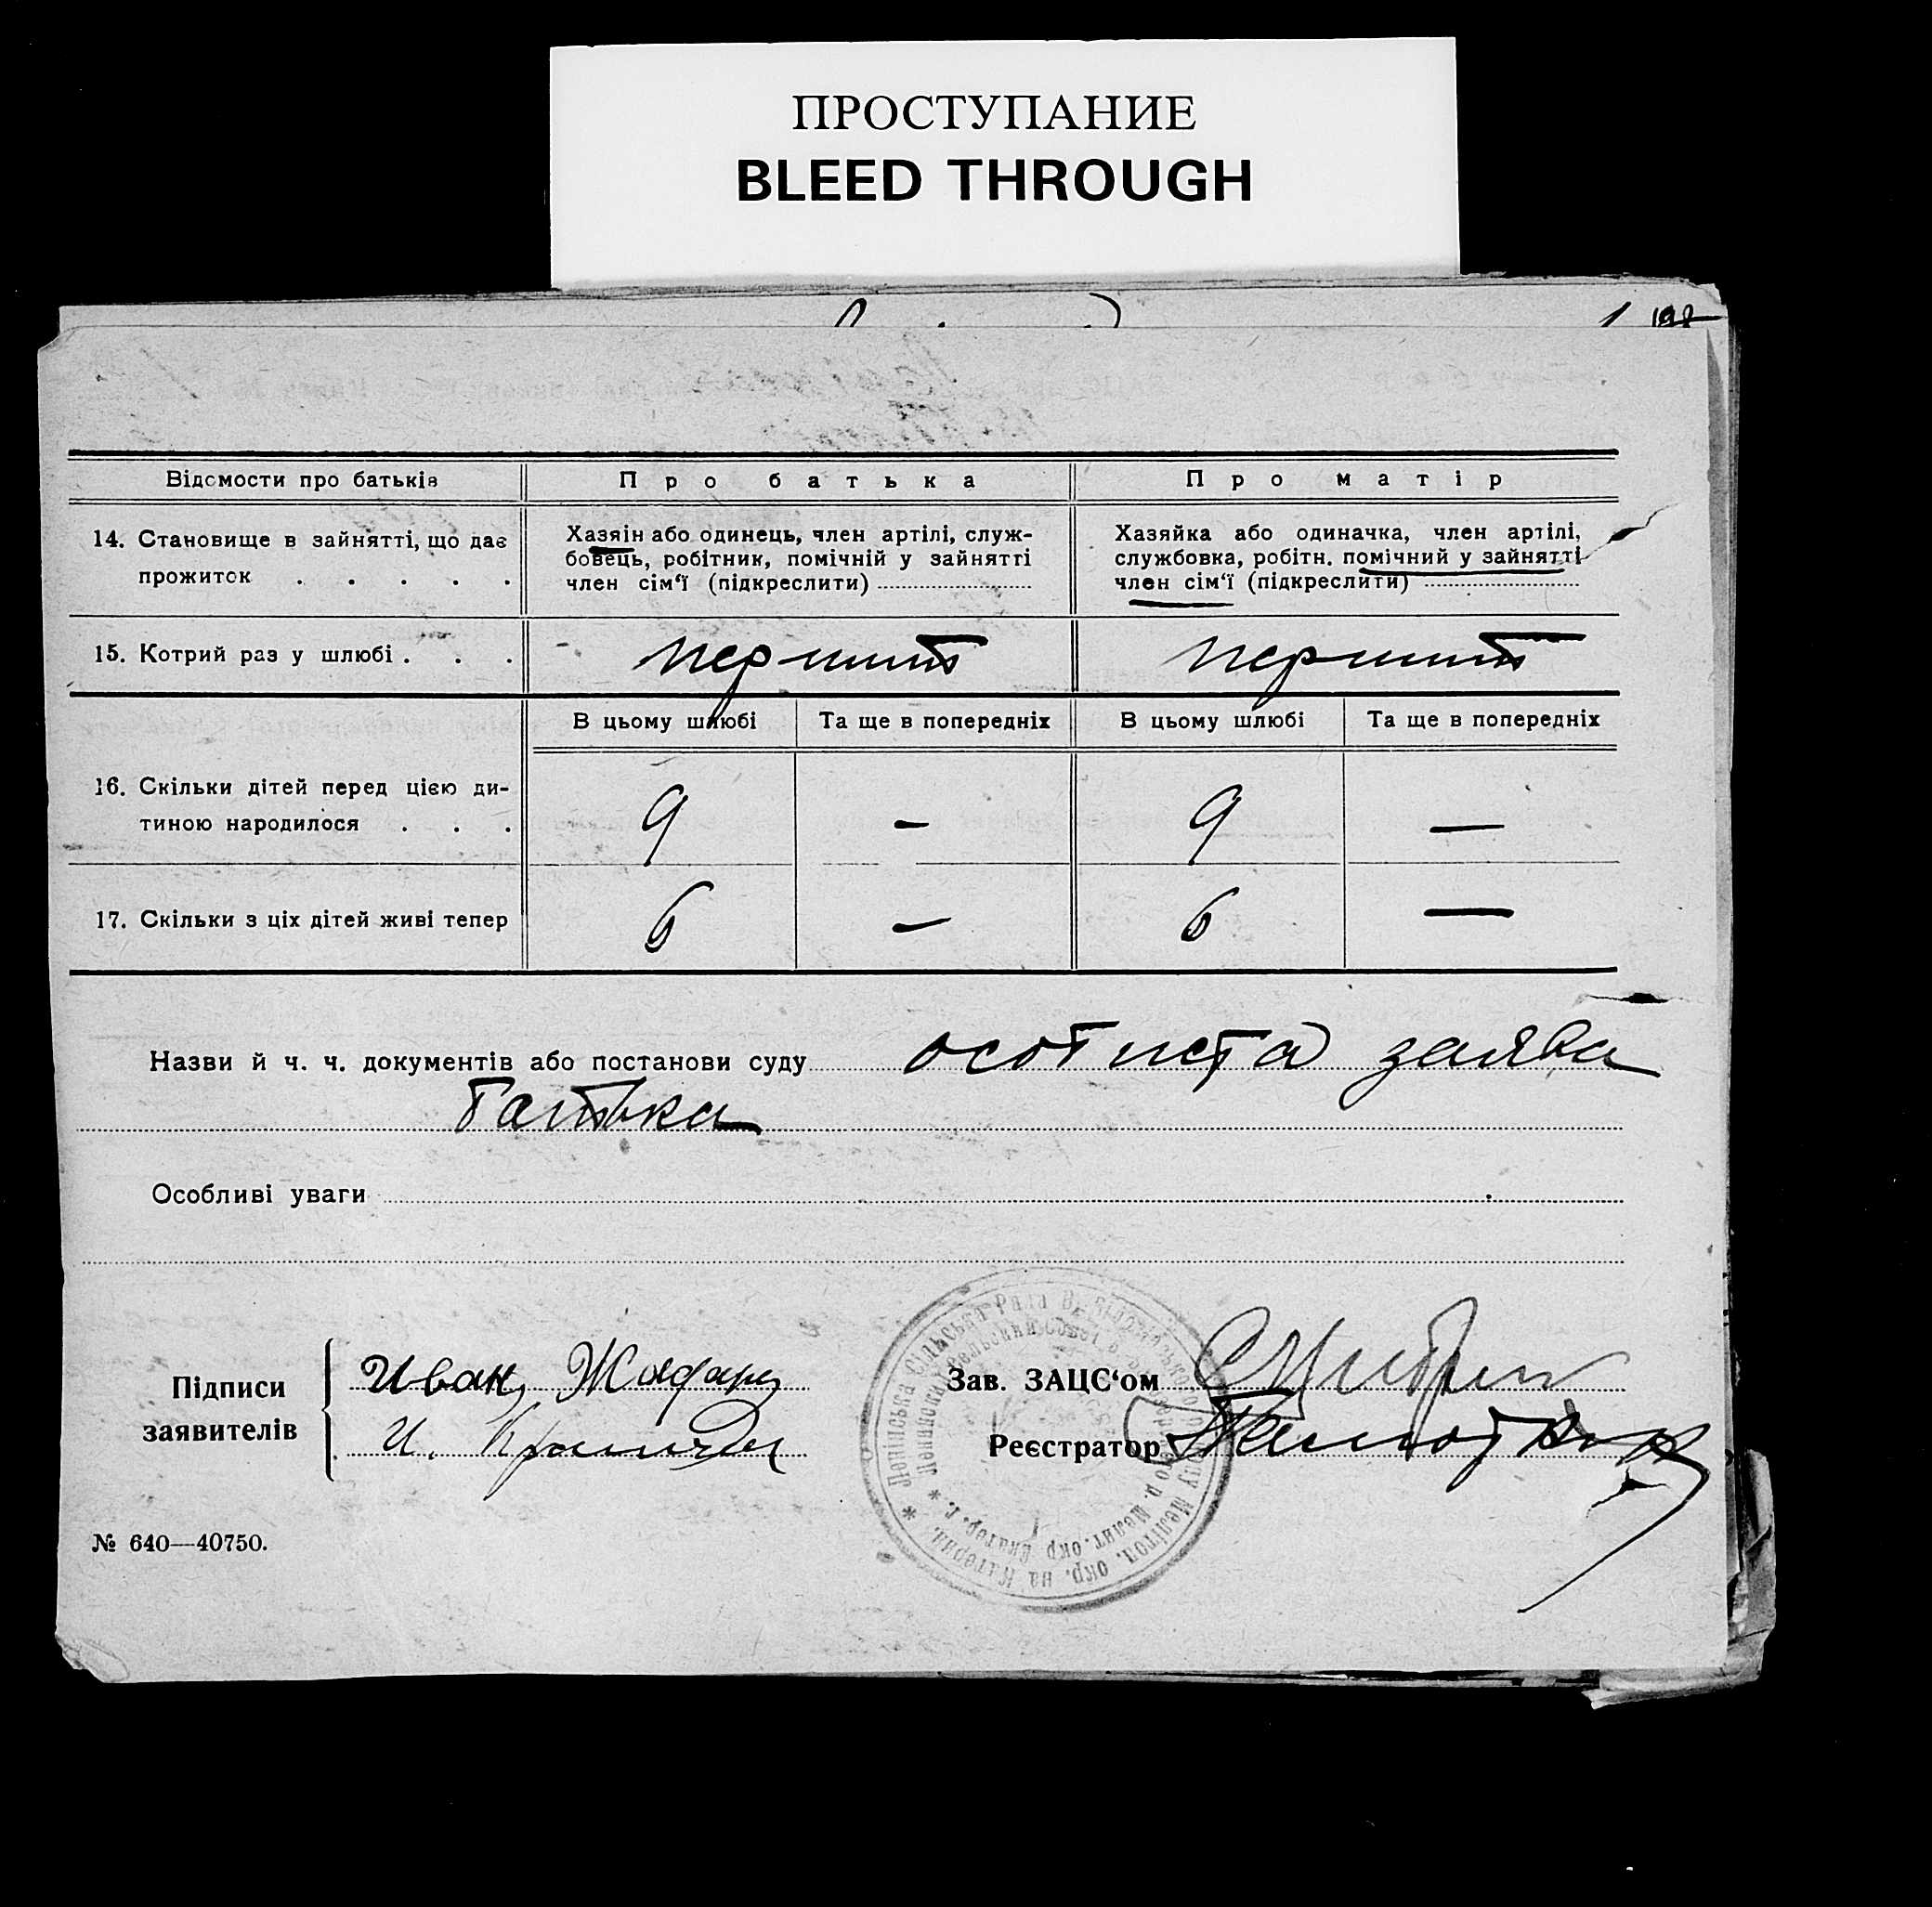 ПРОСТУПАНИЕ
BLEED THROUGH
Відомости про батьків
Про батька
Про матір
14. Становище в зайнятті, що дає
прожиток . . . . .
Хазяін або одинець, член артілі, служ-
бовець, робітник, помічній у зайнятті
член сім‘ї (підкреслити)
Хазяйка або одиначка, член артілі,
службовка, робітн. помічний у зайнятті
член сім‘ї (підкреслити)
15. Котрий раз у шлюбі . . .
В цьому шлюбі
Та ще в попередніх
В цьому шлюбі
Та ще в попередніх
16. Скільки дітей перед цією ди-
тиною народилося . . .
9
-
9
—
17. Скільки з ціх дітей живі тепер
6
-
6
—
Назви й ч. ч. документів або постанови суду особиста заява
батька
Особливі уваги
Підписи
заявителів
Иван
И.
Зав. ЗАЦС‘ом
Реєстратор
* Ленінська Сільська Рада
Мелітоп. окр. на Катерин.
Сельский Совет
р. Мелит. окр. Екатер. г. *
№ 640—40750.